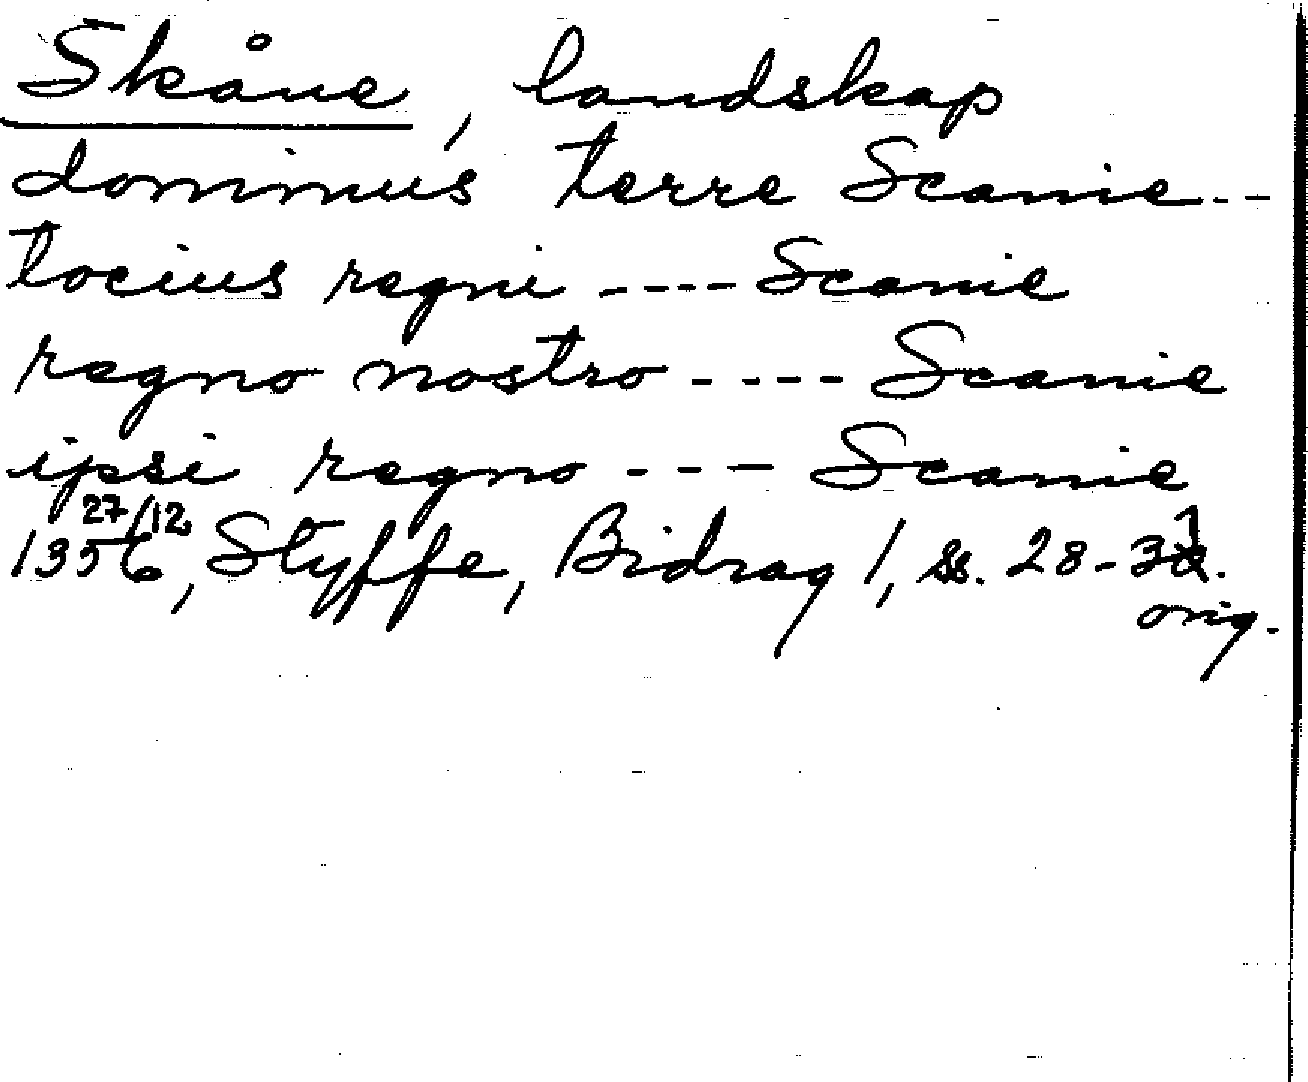 Skåne, landskap
dominus terre Scanie---
tocius regni ---- Scanie
regno nostro ---- Scanie
ipsi regno --- Scanie
27/12
1356, Styffe, Bidrag 1, ss. 28-31.
orig.